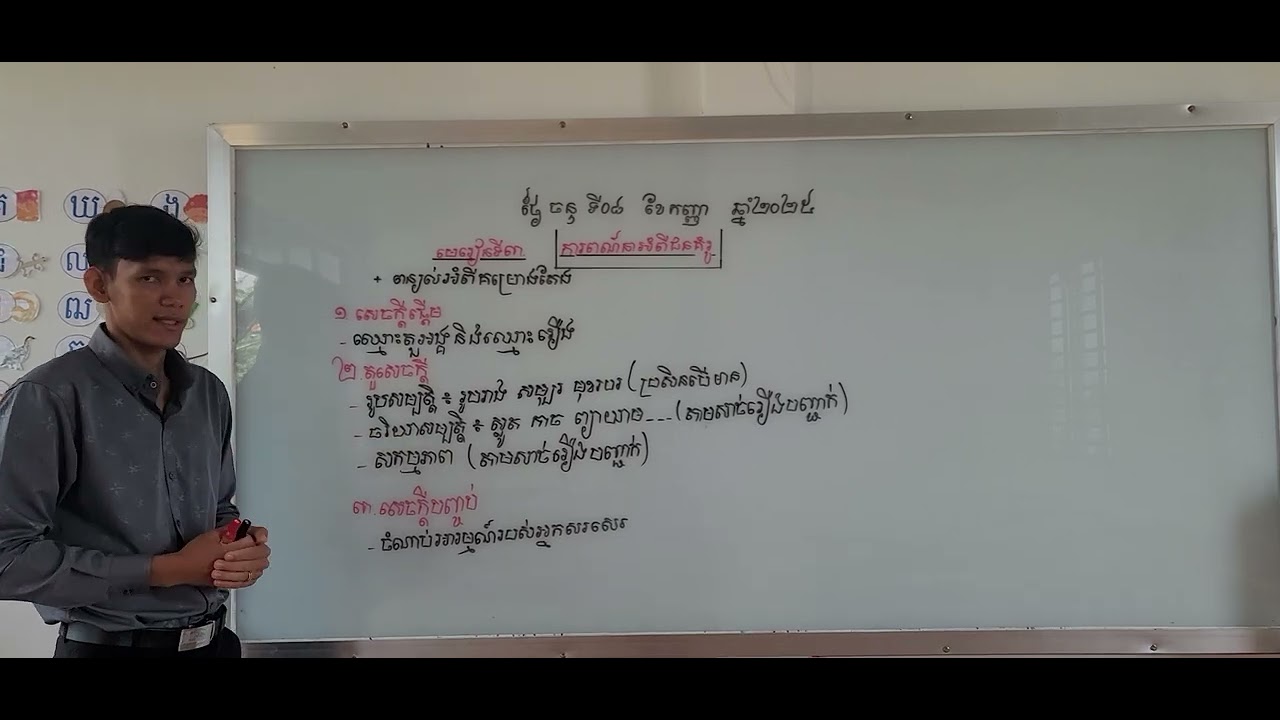 ថ្ងៃ ចន្ទ ទី០៨ ខែកញ្ញា ឆ្នាំ២០២៥
មេរៀនទី៣ ការពណ៌នាអំពីជនគំរូ
+ ពន្យល់អំពីគម្រោងតែង
១ សេចក្តីផ្តើម
- ឈ្មោះតួអង្គ និងឈ្មោះរឿង
២. តួសេចក្តី
- រូបសម្បត្តិ ៖ រូបរាង សម្បុរ មុខរបរ (ប្រសិនបើមាន)
- ចរិយាសម្បត្តិ ៖ ស្លូត កាច ព្យាយាម --- (តាមសាច់រឿងបញ្ជាក់)
- សកម្មភាព (តាមសាច់រឿងបញ្ជាក់)
៣. សេចក្តីបញ្ចប់
- ចំណាប់អារម្មណ៍របស់អ្នកសរសេរ
ឃ ង
ឍ